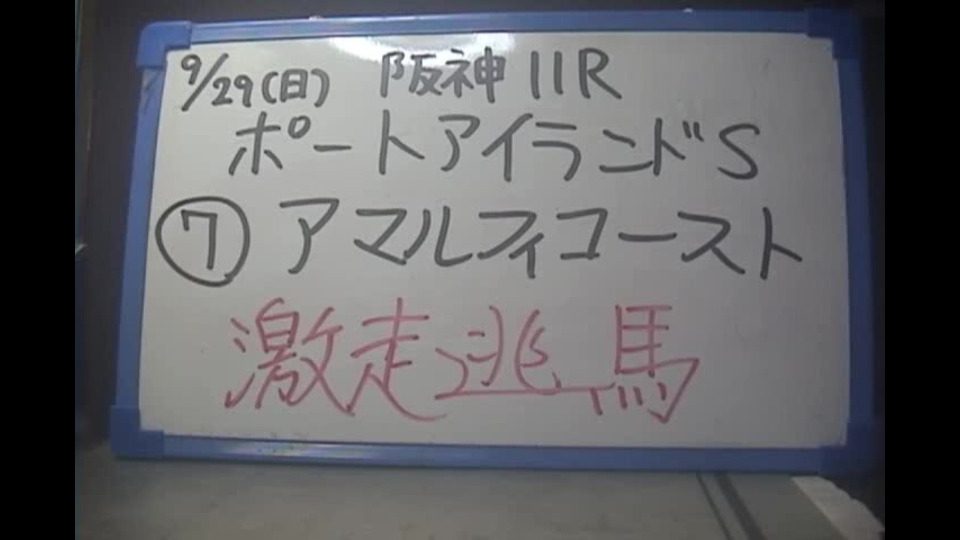 9/29(日) 阪神11R
ポートアイランドS
⑦アマルフィコースト
激走逃馬